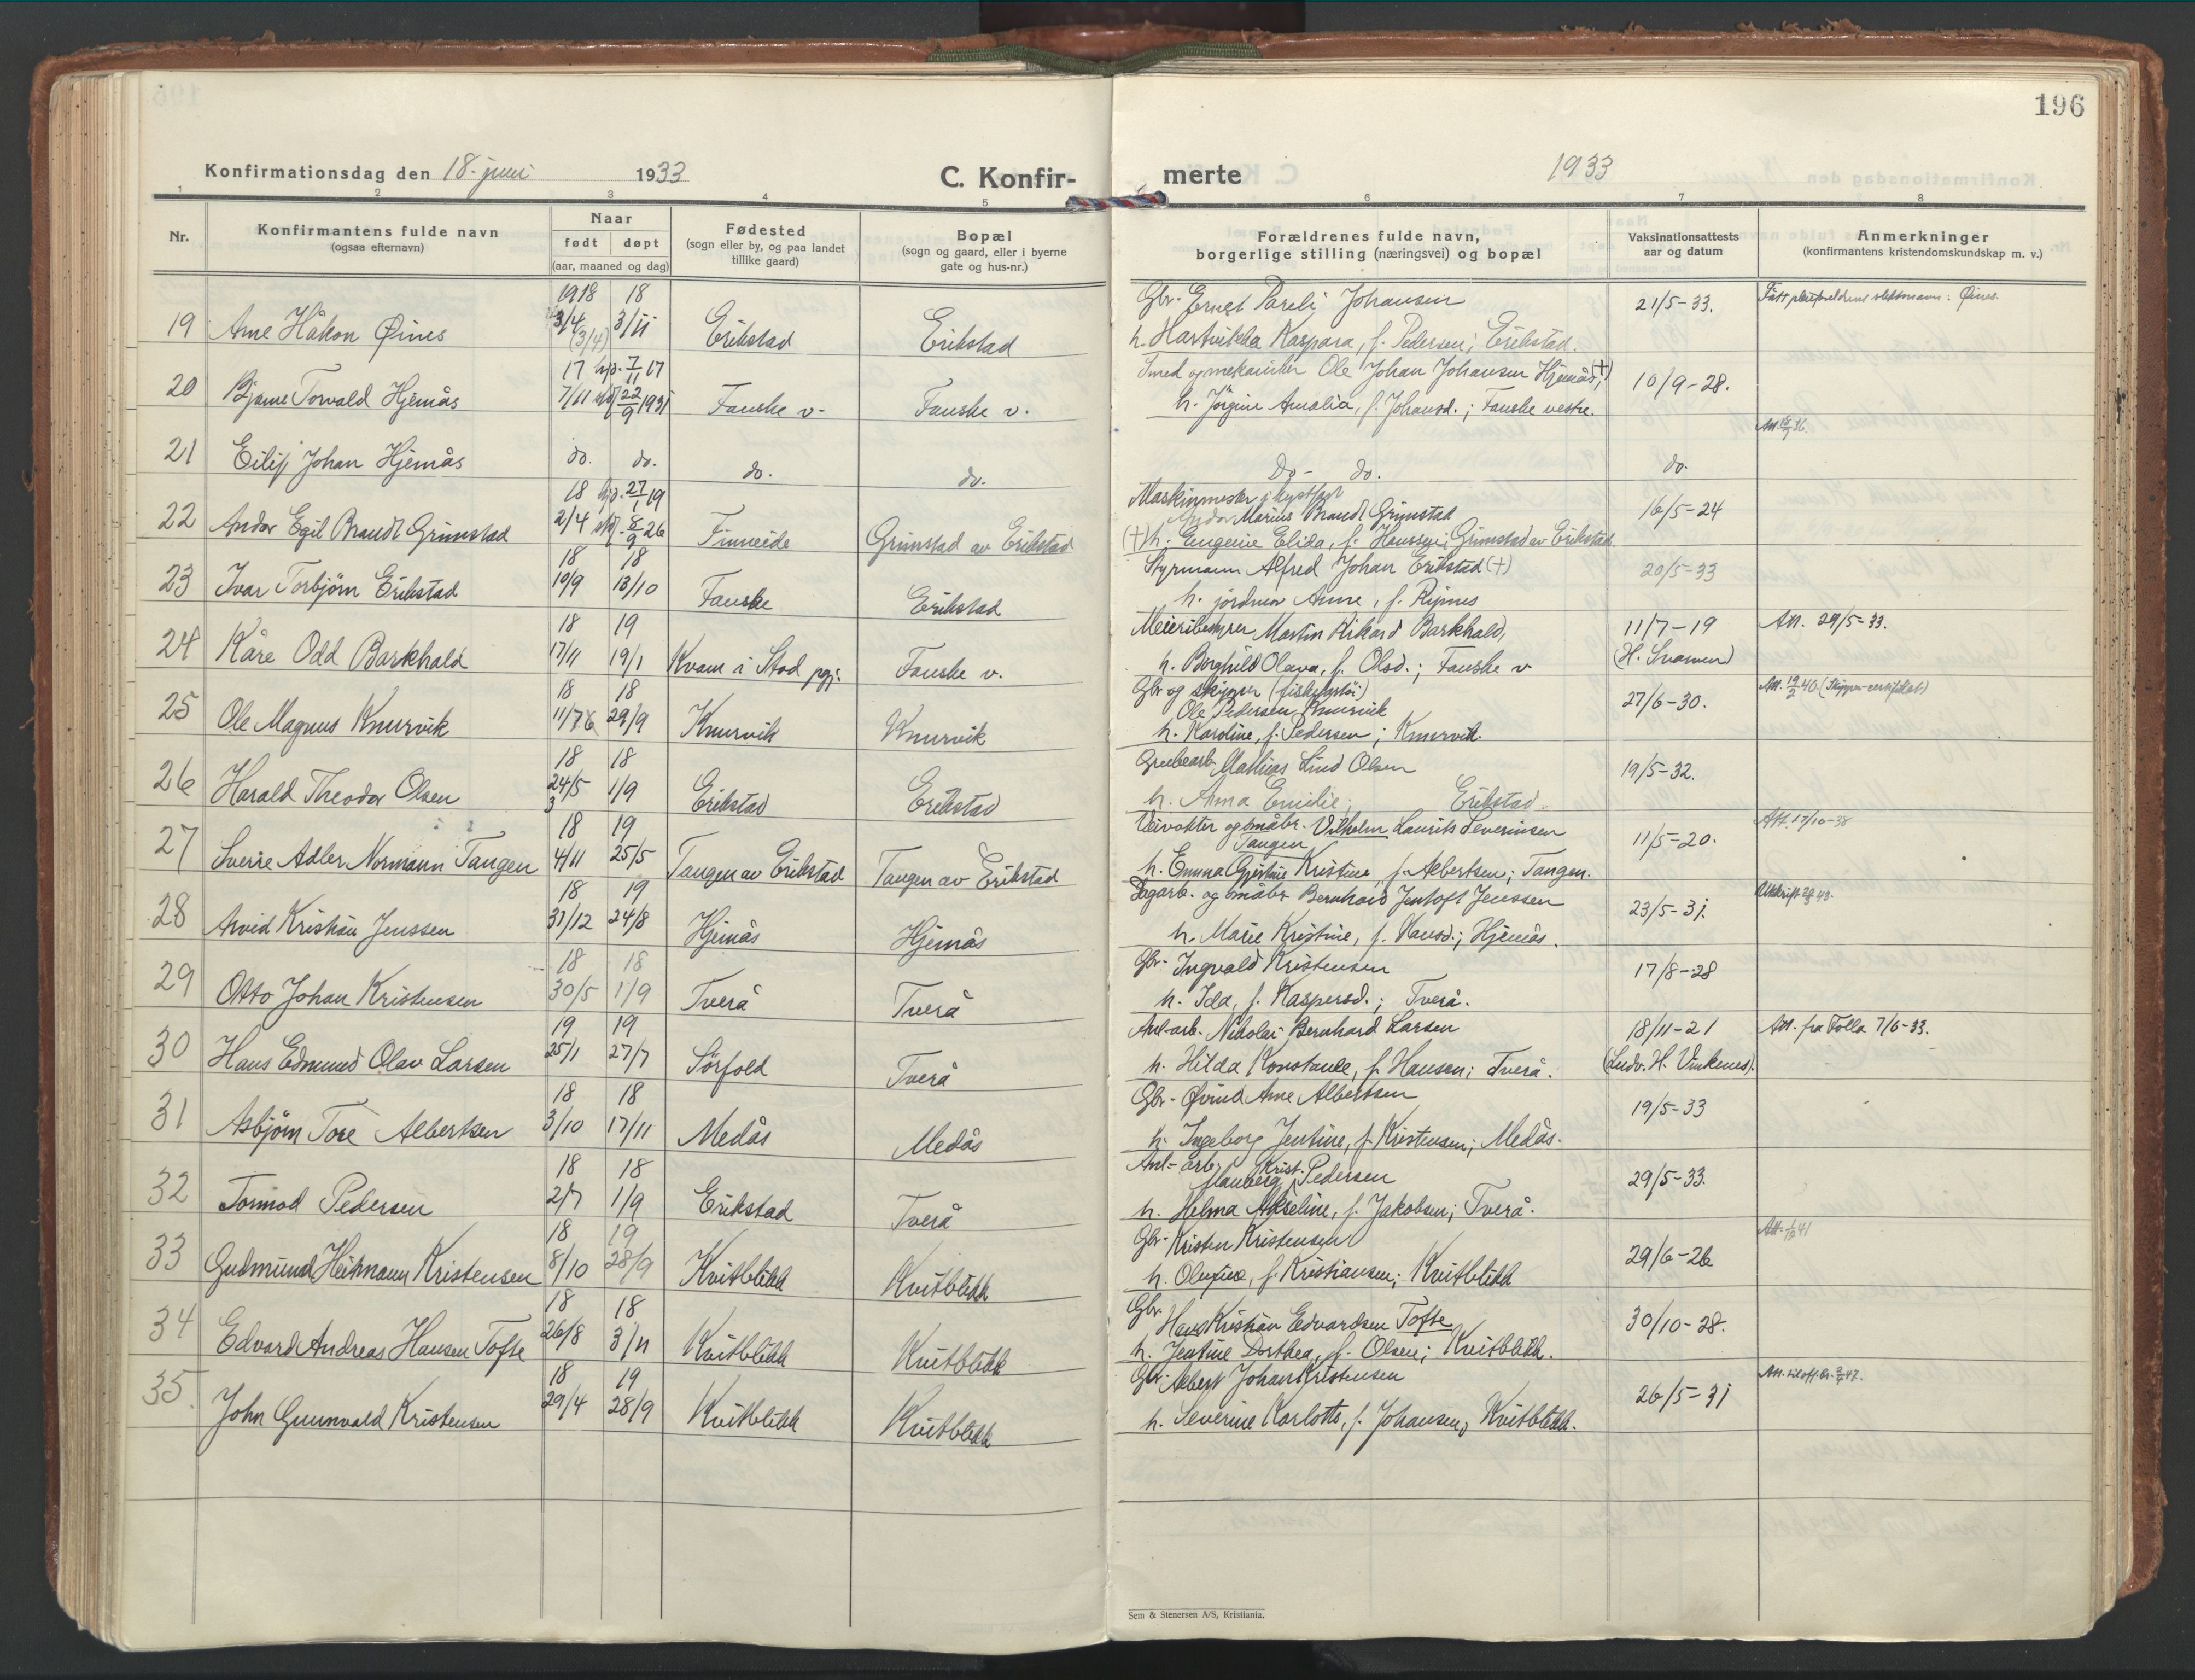 196
Konfirmationsdag den 18. juni 1933
C. Konfir-
merte
1933
1 2 3 4 5 6 7 8
Nr.
Konfirmantens fulde navn
(ogsaa efternavn)
Naar
født døpt
(aar, maaned og dag)
Fødested
(sogn eller by, og paa landet
tillike gaard)
Bopæl
(sogn og gaard, eller i byerne
gate og hus-nr.)
Forældrenes fulde navn,
borgerlige stilling (næringsvei) og bopæl
Vaksinationsattests
aar og datum
Anmerkninger
(konfirmantens kristendomskundskap m. v.)
1918 18
19 Arne Håkon Øines 3/4 (3/4) 3/11 Erikstad Erikstad
Gbr. Ernst Pareli Johansen
h. Hartvikka Kaspara, f. Pedersen; Erikstad.
21/5-33.
slektsnavn: Øines.
17 hjd. 7/11 17
20 Bjarne Torvald Hjemås 7/11 22/9 1931 Fauske v. Fauske v.
Smed og mekaniker Ole Johan Johansen Hjemås, (+)
h. Jörgine Amalia, f. Johansd.; Fauske vestre.
10/9-28.
21 Eilif Johan Hjemås do. do. do. do.
Do - do.
do.
18 hjd. 27/1 19
22 Andor Egil Brandt Grimstad 2/4 8/9 26 Finneide Grimstad av Erikstad
Maskinmester i kystfart
Andor Marius Brandt Grimstad
(+) h. Eugenie Elida, f. Hanssen; Grimstad av Erikstad
16/5-24
18 18
23 Ivar Torbjörn Erikstad 10/9 13/10 Fauske Erikstad
Styrmann Alfred Johan Erikstad (+)
h. jordmor Anne, f. Ripnes
20/5-33
18 19
24 Kåre Odd Barkhald 17/11 19/1 Kvam i Stod pgj. Fauske v.
Meieribestyrer Martin Rikard Barkhald,
h. Borghild Olava, f. Olsd.; Fauske v
11/7-19
(H. Svarven)
Att. 29/5-33.
18 18
25 Ole Magnus Knurvik 11/7 6 29/9 Knurvik Knurvik
Gbr og skipper
Ole Pedersen Knurvik
h. Karoline, f. Pedersen; Knurvik.
27/6-30.
Att. 19/2 40. (Skipper-certifikat)
18 18
26 Harald Theodor Olsen 24/5 3 1/9 Erikstad Erikstad
Grubearb Mathias Lind Olsen
h. Anna Emilie; Erikstad.
19/5-32.
18 19
27 Sverre Adler Normann Tangen 4/11 25/5 Tangen av Erikstad Tangen av Erikstad
Veivokter og småbr. Vilhelm Laurits Severinsen
Tangen
h. Emma Gjertine Kristine, f. Albertsen; Tangen.
11/5-20.
Att. 17/10-38
18 19
28 Arvid Kristian Jenssen 31/12 24/8 Hjemås Hjemås
Dagarb. og småbr Bernhard Jentoft Jenssen
h. Marie Kristine, f. Hansd.; Hjemås.
23/5-31.
18 18
29 Otto Johan Kristensen 30/5 1/9 Tverå Tverå
Gbr- Ingvald Kristensen
h. Ida, f. Kaspersd.; Tverå.
17/8-28
19 19
30 Hans Edmund Olav Larsen 25/1 27/7 Sörfold Tverå
Anl-arb. Nikolai Bernhard Larsen
h. Hilda Konstanse, f. Hansen; Tverå.
18/11-21
(Ludv. H. Vinkenes).
Att. fra Folla 7/6-33.
18 18
31 Asbjörn Tore Albertsen 3/10 17/11 Medås Medås
Gbr- Øivind Arne Albertsen
h. Ingeborg Jentine, f. Kristensen; Medås.
19/5-33
18 18
32 Tormod Pedersen 2/7 1/9 Erikstad Tverå
Anl- arb. Krist.
Hauberg Pedersen
h. Helma Akseline, f. Jakobsen; Tverå.
29/5-33.
18 19
33 Gudmund Heitmann Kristensen 8/10 28/9 Kvitblikk Kvitblikk
Gbr- Kristen Kristensen
h. Olufine, f. Kristiansen; Kvitblikk
29/6-26
18 18
34 Edvard Andreas Hansen Tofte 26/8 3/11 Kvitblikk Kvitblikk
Gbr. Hans Kristian Edvardsen Tofte
h. Jentine Dorthea, f. Olsen; Kvitblikk.
30/10-28.
18 19
35. John Gunnvald Kristensen 29/4 28/9 Kvitblikk Kvitblikk
Gbr. Albert Johan Kristensen
h. Severine Karlotte, f. Johansen, Kvitblikk.
26/5-31
Sem & Stenersen A/S, Kristiania.